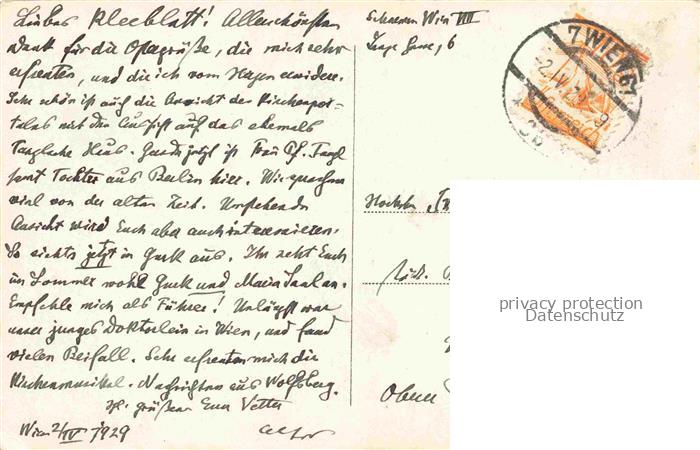 Liebes Kleeblatt! Allerschönsten
Dank für die Ostergrüße, die mich sehr
erfreuten, und die ich vom Herzen erwidere.
Sehr schön ist auch die Ansicht des Kirchenpor-
tales mit der Aussicht auf das ehemals
Tanglsche Haus. Gerade jetzt ist Frau Pf. Tangl
samt Tochter aus Berlin hier. Wir sprachen
viel von der alten Zeit. Umstehende
Ansicht wird Euch aber auch interessieren.
So siehts jetzt in Gurk aus. Ihr seht Euch
im Sommer wohl Gurk und Maria Saal an.
Empfehle mich als Führer! Unlängst war
unser junges Doktorlein in Wien, und fand
vielen Beifall. Sehr erfreuten mich die
kirchenmusikal. Nachrichten aus Wolfsberg.
Hz. grüßen Euer Vetter
Wien 2/IV 1929
Wien VIII
Lange Gasse, 6
7 WIEN 61
Hochw.
Ober
privacy protection
Datenschutz